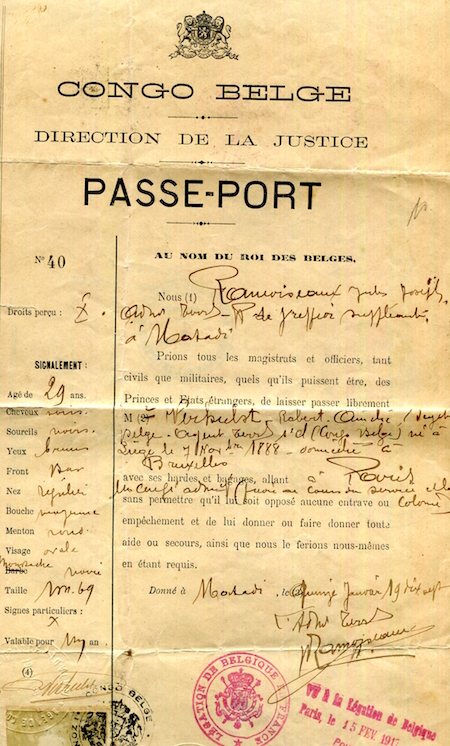 CONGO BELGE
DIRECTION DE LA JUSTICE
PASSE-PORT
N° 40
Droits perçu : X.
SIGNALEMENT:
Agé de 29 ans.
Cheveux noirs.
Sourcils noirs.
Yeux bruns
Front Bas
Nez régulier
Bouche moyenne
Menton rond
Visage ovale
Moustache
Barbe noire
Taille 1m.69
Signes particuliers :
X
Valable pour un an.
(4)
AU NOM DU ROI DES BELGES.
Nous (1) Ramoiseaux Jules Joseph,
greffier suppléant,
à Matadi
Prions tous les magistrats et officiers, tant
civils que militaires, quels qu'ils puissent être, des
Princes et Etats étrangers, de laisser passer librement
M (2) Verhulst, Robert, Amédé, sujet
belge (Congo Belge) né à
Liège le 7 Novbre 1888 domicilié à
Bruxelles
avec ses hardes et bagages, allant à Paris
en congé
sans permettre qu'il lui soit opposé aucune entrave ou
empêchement et de lui donner ou faire donner toute
aide ou secours, ainsi que nous le ferions nous-mêmes
en étant requis.
Donné à Matadi, le quinze Janvier 19 dix sept
CONGO BELGE
LÉGATION DE BELGIQUE EN FRANCE
VU à la Légation de Belgique
Paris, le 15 FEV. 1917